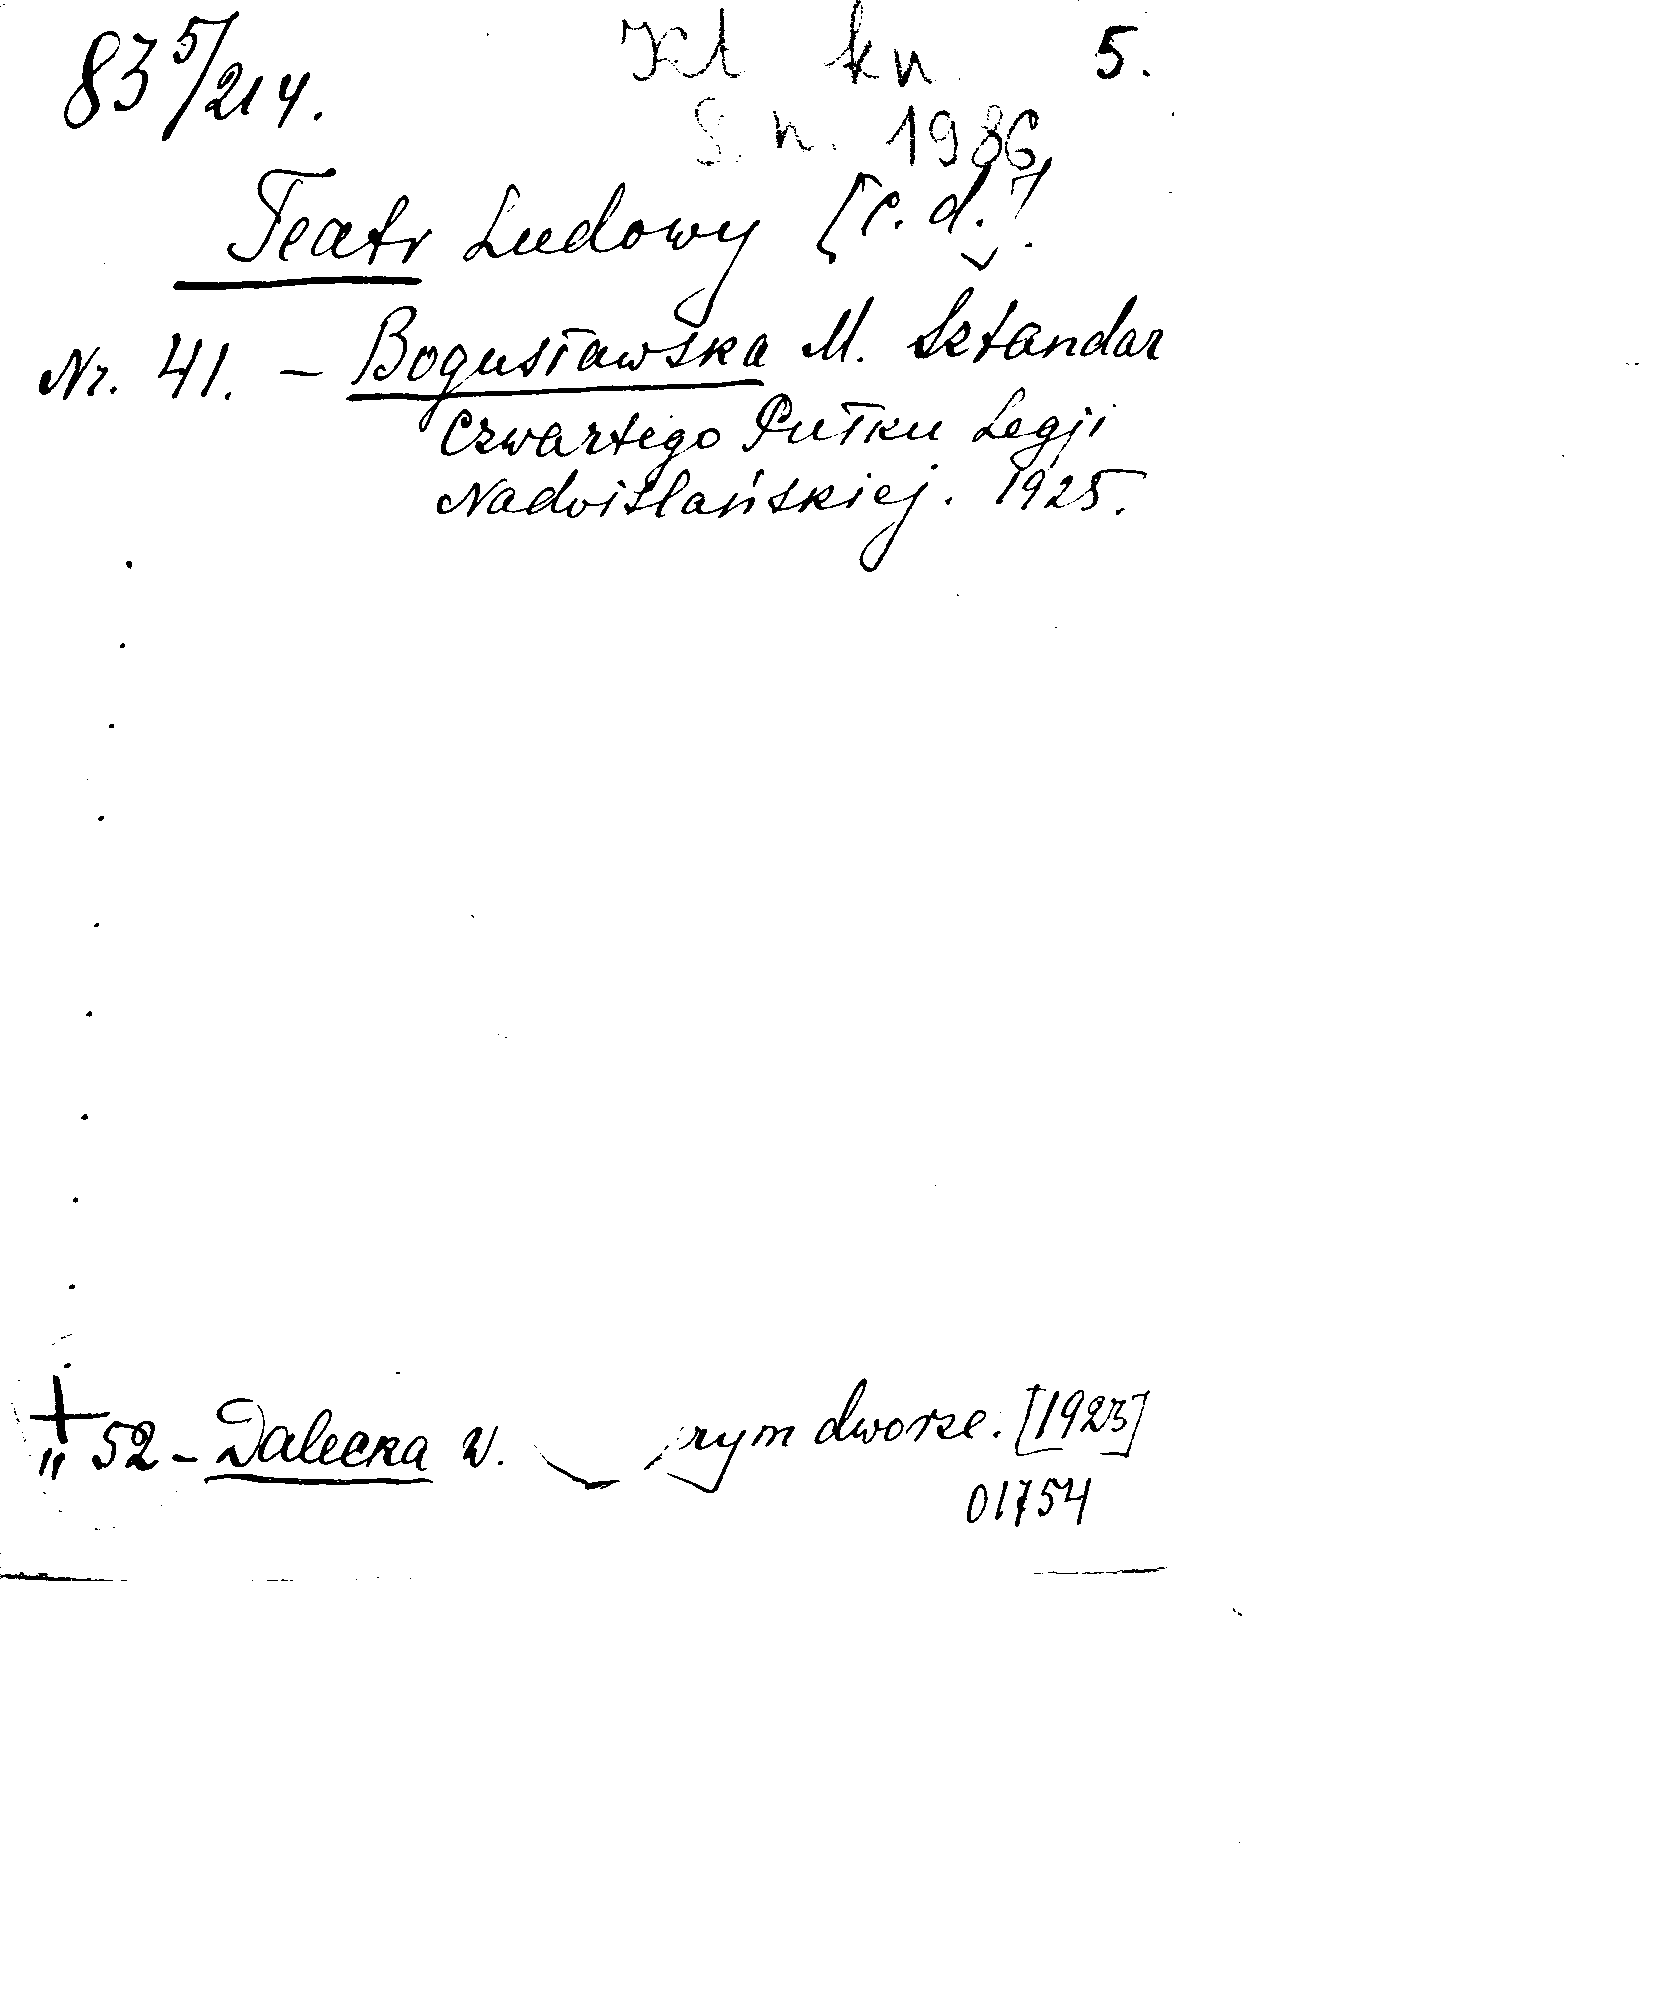 83 5/214. Kl kn 5.
S. n. 1986
Teatr Ludowy [c. d.].
Nr. 41. – Bogusławska M. Sztandar
Czwartego Pułku Legji
Nadwiślańskiej. 1925.
+
" 52 – Dalecka W. rym dworze. [1923]
01754